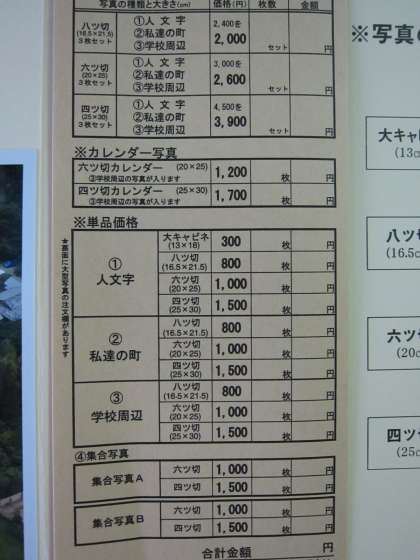 写真の種類と大きさ(cm) 価格(円) 枚数 金額
八ツ切 (16.5×21.5) 3枚セット ①人文字 ②私達の町 ③学校周辺 2,400を 2,000 セット 円
六ツ切 (20×25) 3枚セット ①人文字 ②私達の町 ③学校周辺 3,000を 2,600 セット 円
四ツ切 (25×30) 3枚セット ①人文字 ②私達の町 ③学校周辺 4,500を 3,900 セット 円
※カレンダー写真
六ツ切カレンダー (20×25) ③学校周辺の写真が入ります 1,200 枚 円
四ツ切カレンダー (25×30) ③学校周辺の写真が入ります 1,700 枚 円
※単品価格
① 人文字
大キャビネ (13×18) 300 枚 円
八ツ切 (16.5×21.5) 800 枚 円
六ツ切 (20×25) 1,000 枚 円
四ツ切 (25×30) 1,500 枚 円
② 私達の町
八ツ切 (16.5×21.5) 800 枚 円
六ツ切 (20×25) 1,000 枚 円
四ツ切 (25×30) 1,500 枚 円
③ 学校周辺
八ツ切 (16.5×21.5) 800 枚 円
六ツ切 (20×25) 1,000 枚 円
四ツ切 (25×30) 1,500 枚 円
④集合写真
集合写真A
六ツ切 1,000 枚 円
四ツ切 1,500 枚 円
集合写真B
六ツ切 1,000 枚 円
四ツ切 1,500 枚 円
合計金額 円
★裏面に大型写真の注文欄があります
※写真の
大キャビ
(13c
八ツ切
(16.5c
六ツ切
(20c
四ツ切
(25c